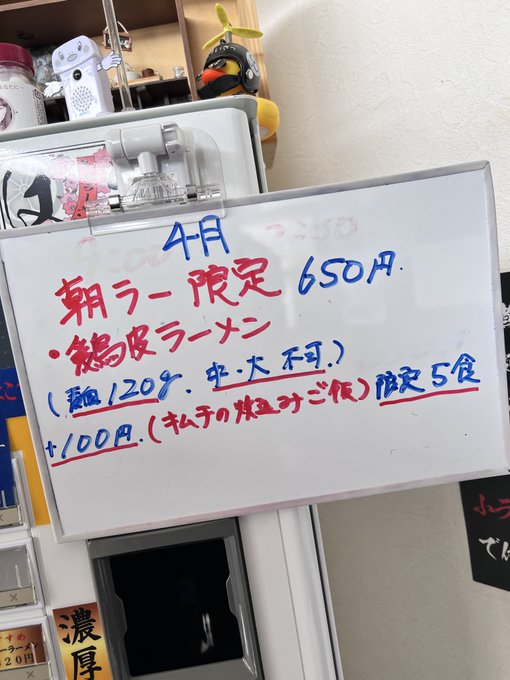 4月
朝ラー限定 650円.
・鶏皮ラーメン
(麺120g、中・大 不可.)
+100円.(キムチの炊込みご飯)限定5食
は
濃厚
すすめ
ーラーメン
20円
小ラ